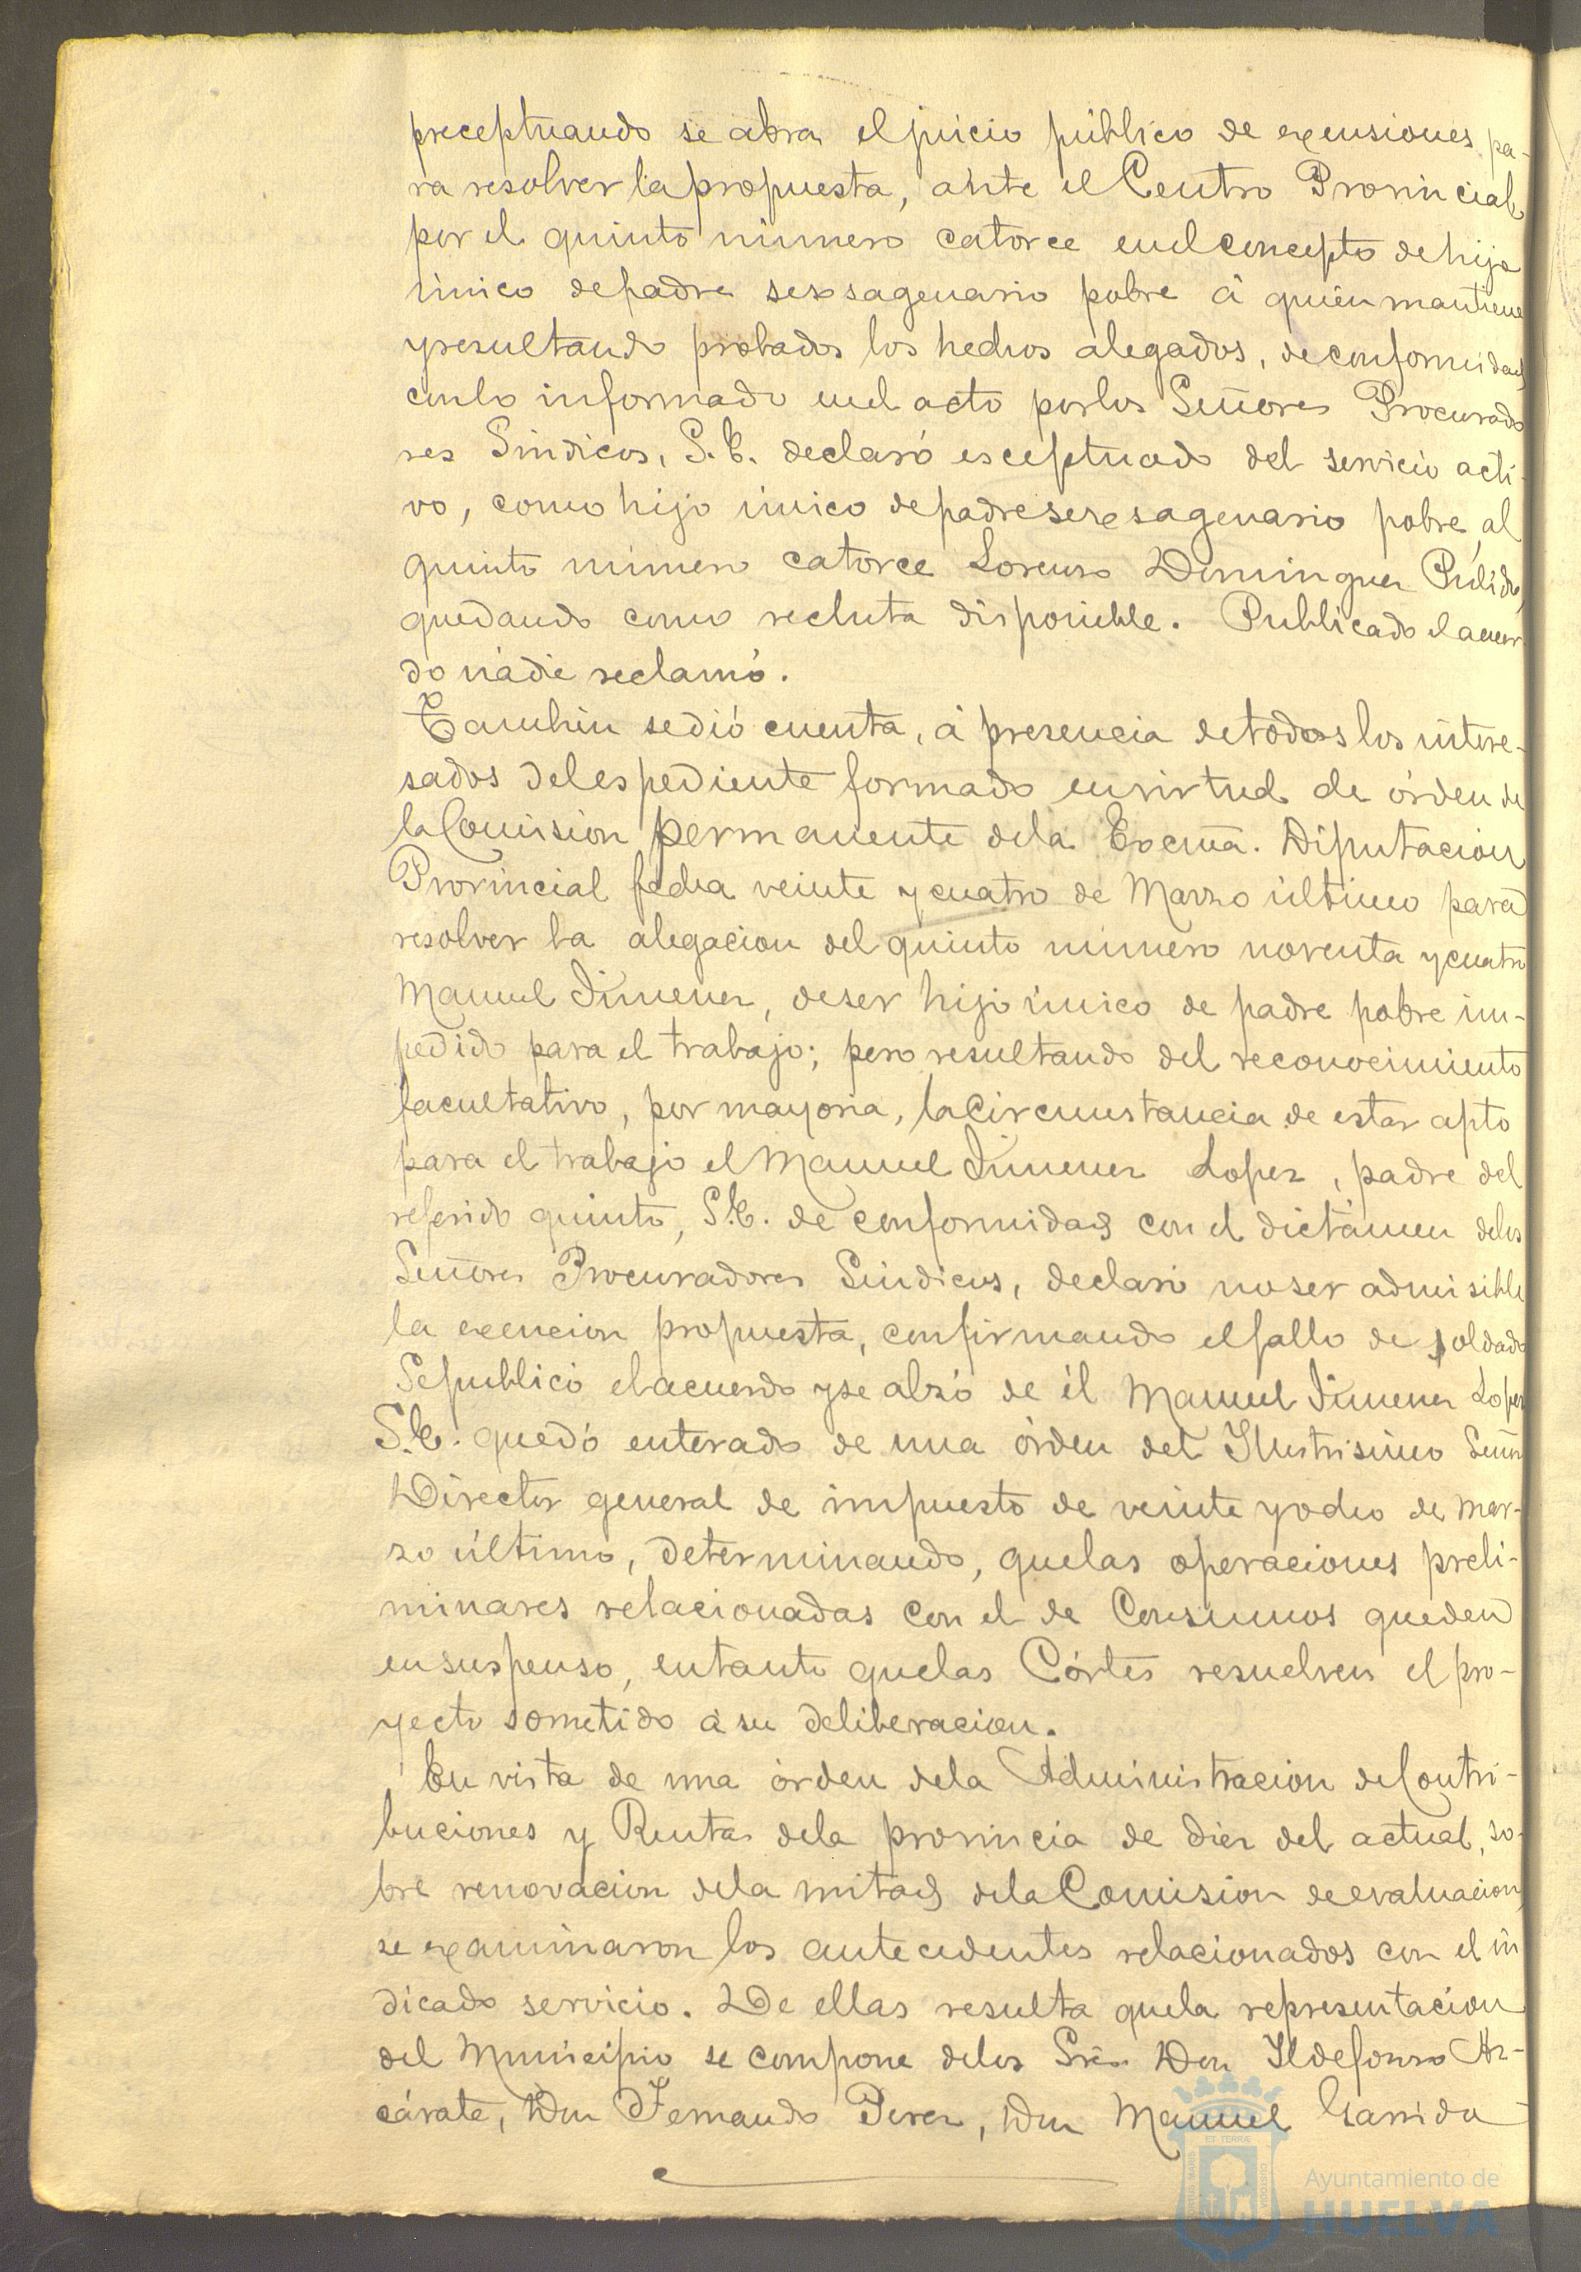 preceptuando se abra el juicio público de exensiones pa-
ra resolver la propuesta, ante el Centro Provincial
por el quinto número catorce en el concepto de hijo
único de padre sexsagenario pobre á quien mantiene
y resultando probados los hechos alegados, de conformidad
con lo informado en el acto por los Señores Procurado
res Sindicos, S.E. declaró esceptuado del servicio acti-
vo, como hijo único de padre sexsagenario pobre, al
quinto número catorce Lorenzo Dominguez Pulido,
quedando como recluta disponible. Publicado el acuer
do nádie reclamó.
Tambien se dió cuenta, á presencia de todos los intere-
sados del espediente formado en virtud de órden de
la Comision permanente de la Excma. Diputacion
Provincial fecha veinte y cuatro de Marzo último para
resolver la alegacion del quinto número noventa y cuatro
Manuel Jimenez, de ser hijo único de padre pobre im-
pedido para el trabajo; pero resultando del reconocimiento
facultativo, por mayoria, la circunstancia de estar apto
para el trabajo el Manuel Jimenez Lopez, padre del
referido quinto, S.E. de conformidad con el dictámen de los
Señores Procuradores Sindicos, declaró no ser admisible
la exencion propuesta, confirmando el fallo de soldado
Se publicó el acuerdo y se alzó de él Manuel Jimenez Lopez
S.E. quedó enterado de una órden del Ilustrisimo Señor
Director general de impuesto de veinte y ocho de Mar-
zo último, determinando, que las operaciones preli-
minares relacionadas con el de Consumos queden
en suspenso, en tanto que las Córtes resuelven el pro-
yecto sometido á su deliberacion.
En vista de una órden de la Administracion de Contri-
buciones y Rentas de la provincia de diez del actual, so-
bre renovacion de la mitad de la Comision de evaluacion,
se examinaron los antecedentes relacionados con el in
dicado servicio. De ellas resulta que la representacion
del Municipio se compone de los Sres. Don Ildefonso Az-
cárate, Don Fernando Perez, Don Manuel Garrido
Ayuntamiento de
HUELVA